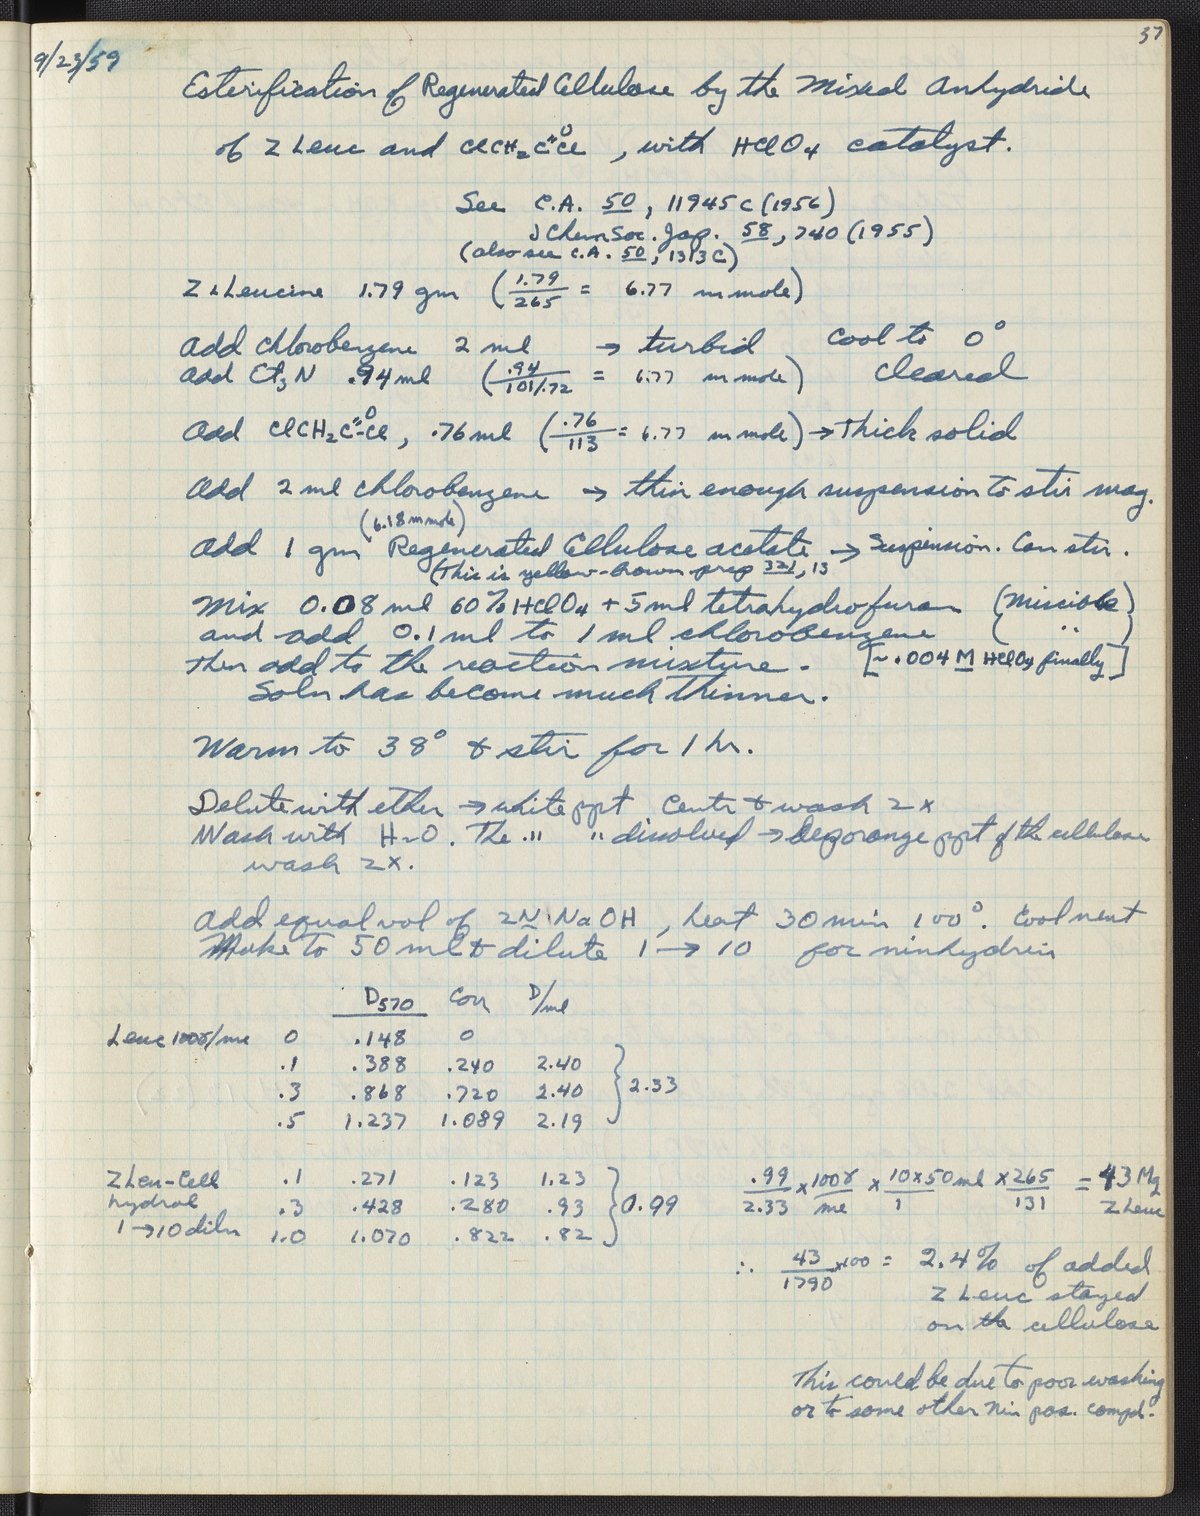 37
9/23/59
Esterification of Regenerated Cellulose by the Mixed Anhydride
of Z Leuc and ClCH₂C(=O)Cl, with HClO₄ catalyst.
See C.A. 50, 11945c (1956)
J Chem Soc. Jap. 58, 740 (1955)
(also see C.A. 50, 1313c)
Z L Leucine 1.79 gm (1.79/265 = 6.77 m mole)
Add chlorobenzene 2 ml → turbid cool to 0°
add Et₃N .94 ml (.94/101/.72 = 6.77 m mole) cleared
Add ClCH₂C(=O)-Cl, .76 ml (.76/113 = 6.77 m mole) → Thick solid
Add 2 ml chlorobenzene → thin enough suspension to stir mag.
(6.18 m mole)
Add 1 gm Regenerated Cellulose acetate → Suspension. Can stir.
(This is yellow-brown prep 321, 13
Mix 0.08 ml 60% HClO₄ + 5 ml tetrahydrofuran (miscible)
and add 0.1 ml to 1 ml chlorobenzene ( " )
Then add to the reaction mixture. [~.004 M HClO₄ finally]
Soln has become much thinner.
Warm to 38° & stir for 1 hr.
Delute with ether → white ppt Centr & wash 2x
Wash with H₂O. The " " dissolved → orange ppt of the cellulose
wash 2x.
Add equal vol of 2N NaOH, heat 30 min 100°. Cool neut
Make to 50 ml & dilute 1 → 10 for ninhydrin
D₅₇₀ Corr D/ml
Leuc 100γ/ml 0 .148 0
.1 .388 .240 2.40
.3 .868 .720 2.40 } 2.33
.5 1.237 1.089 2.19
Z Leu-Cell .1 .271 .123 1.23
hydrol .3 .428 .280 .93 } 0.99
1→10 diln 1.0 1.070 .822 .82
.99/2.33 × 100γ/ml × 10×50 ml/1 × 265/131 = 43 Mg Z Leuc
∴ 43/1790 ×100 = 2.4% of added
Z Leuc stayed
on the cellulose
This could be due to poor washing
or to some other nin pos. compd.